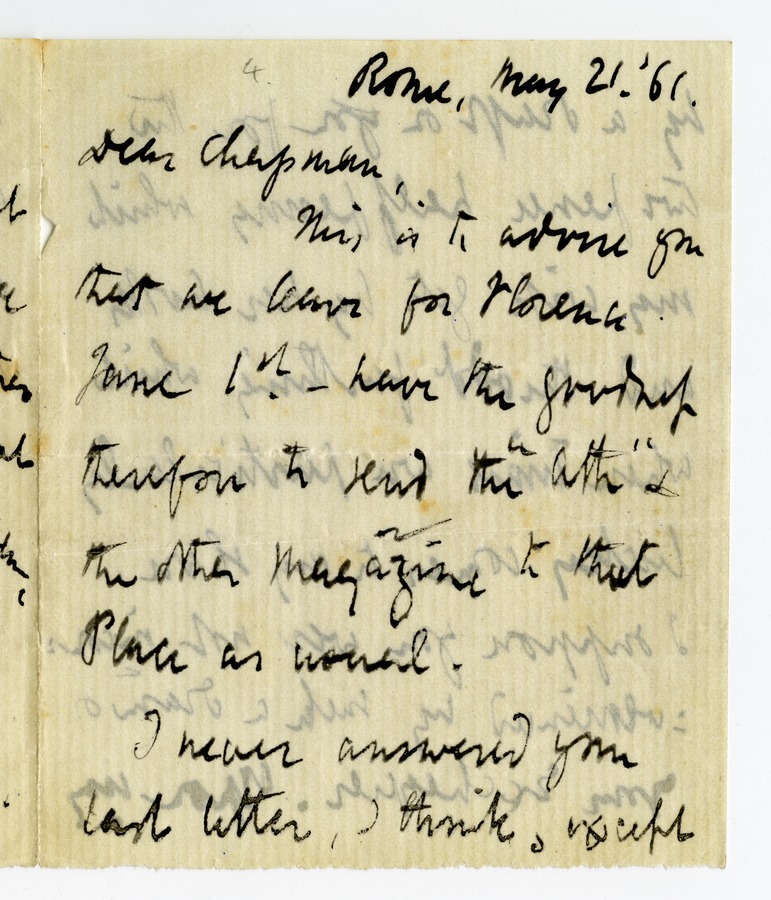 4.
Rome, May 21. '61.
Dear Chapman,
This is to advise you
that we leave for Florence
June 1st. – have the goodness
therefore to send the "Ath" &
the other Magazine to that
Place as usual.
I never answered your
last letter, I think, except